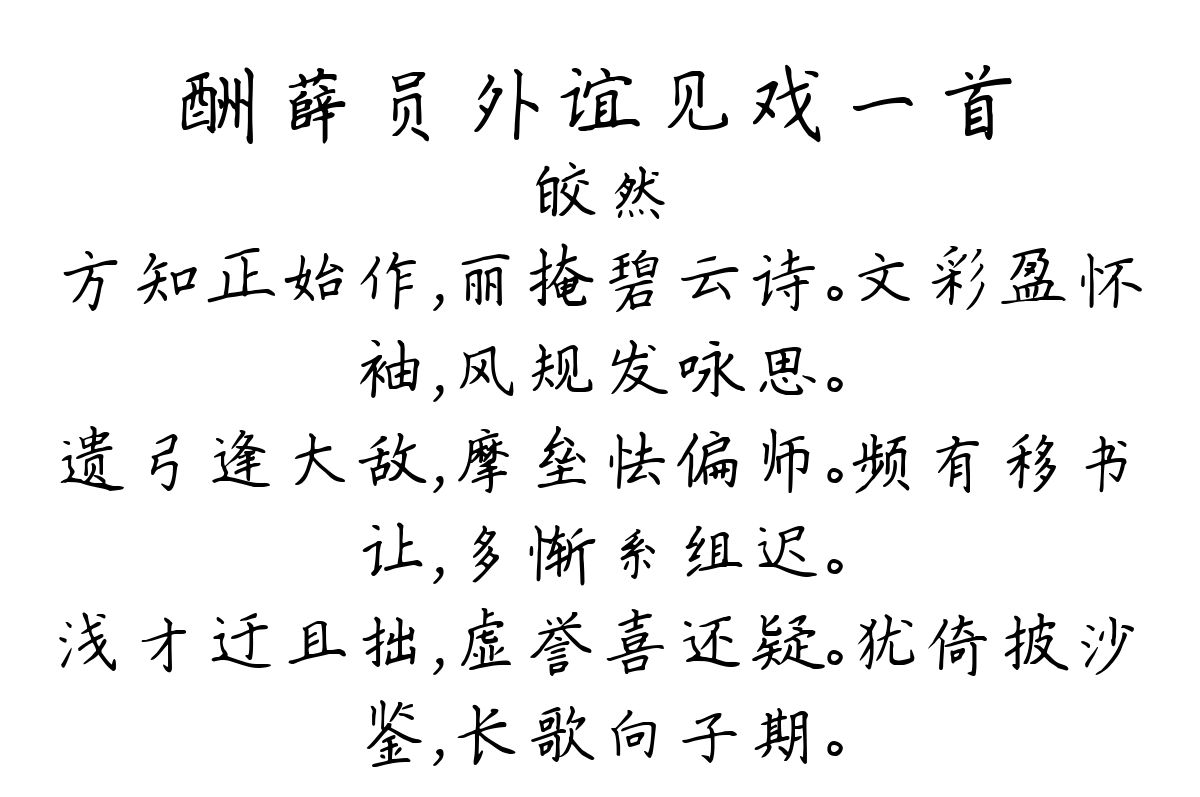 酬薛员外谊见戏一首
皎然
方知正始作,丽掩碧云诗。文彩盈怀
袖,风规发咏思。
遗弓逢大敌,摩垒怯偏师。频有移书
让,多惭系组迟。
浅才迂且拙,虚誉喜还疑。犹倚披沙
鉴,长歌向子期。